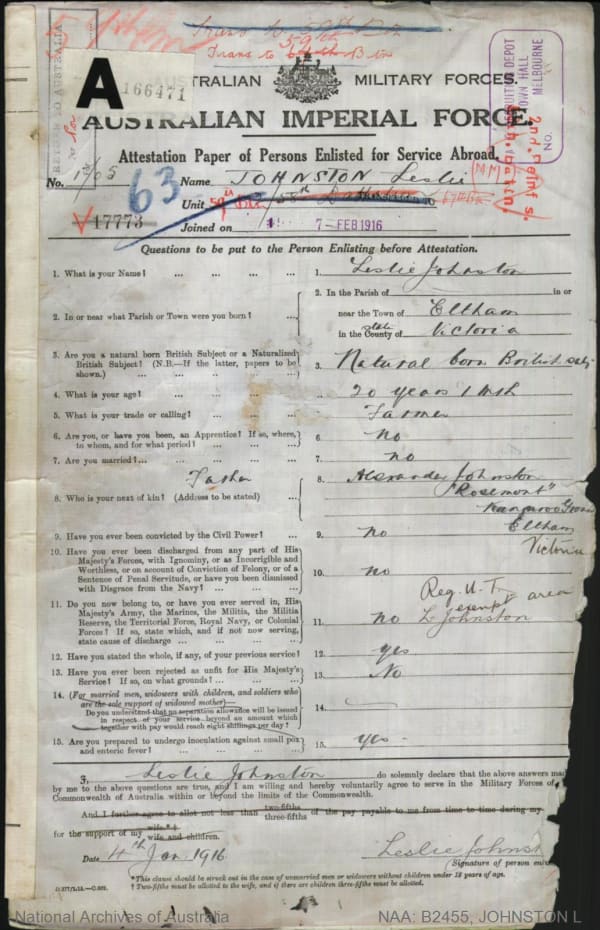 Trans to 59th Btn
A
166471
AUSTRALIAN MILITARY FORCES.
RECRUITING DEPOT
TOWN HALL
MELBOURNE
No.
RETURN TO AUSTRALIA
AUSTRALIAN IMPERIAL FORCE.
Attestation Paper of Persons Enlisted for Service Abroad.
2nd. Reinfs.
No. Name JOHNSTON Leslie
63
Unit
17773 Joined on 7 - FEB 1916
Questions to be put to the Person Enlisting before Attestation.
1. What is your Name? ... ... ... ... 1. Leslie Johnston
2. In or near what Parish or Town were you born? ... 2. In the Parish of in or
near the Town of Eltham
in the County of state Victoria
3. Are you a natural born British Subject or a Naturalized British Subject? (N.B.—If the latter, papers to be shown.) ... 3. Natural born British subj
4. What is your age? ... ... ... ... 20 years 1 Mth
5. What is your trade or calling? ... ... ... Farmer
6. Are you, or have you been, an Apprentice? If so, where, to whom, and for what period? ... 6. no
7. Are you married?... ... ... ... 7. no
8. Who is your next of kin? (Address to be stated) ... Father 8. Alexander Johnston
"Rosemont"
Kangaroo Groun
Eltham
Victoria
9. Have you ever been convicted by the Civil Power? ... 9. no
10. Have you ever been discharged from any part of His
Majesty's Forces, with Ignominy, or as Incorrigible and
Worthless, or on account of Conviction of Felony, or of a
Sentence of Penal Servitude, or have you been dismissed
with Disgrace from the Navy? ... ... 10. no
11. Do you now belong to, or have you ever served in, His
Majesty's Army, the Marines, the Militia, the Militia
Reserve, the Territorial Force, Royal Navy, or Colonial
Forces? If so, state which, and if not now serving,
state cause of discharge ... ... ...
Reg. U.T. exempt area
11. no L Johnston
12. Have you stated the whole, if any, of your previous service? 12. yes
13. Have you ever been rejected as unfit for His Majesty's
Service? If so, on what grounds? ... ... 13. No
14. (For married men, widowers with children, and soldiers who
are the sole support of widowed mother)—
Do you understand that no separation allowance will be issued
in respect of your service beyond an amount which
together with pay would reach eight shillings per day? 14.
15. Are you prepared to undergo inoculation against small pox
and enteric fever? ... ... ... 15. yes
I, Leslie Johnston do solemnly declare that the above answers mad
by me to the above questions are true, and I am willing and hereby voluntarily agree to serve in the Military Forces of
Commonwealth of Australia within or beyond the limits of the Commonwealth.
And I further agree to allot not less than two-fifths three-fifths of the pay payable to me from time to time during my
for the support of my wife*† wife and children.
Date 4th Jan 1916 Leslie Johnst
(Signature of person enlis
*This clause should be struck out in the case of unmarried men or widowers without children under 18 years of age.
† Two-fifths must be allotted to the wife, and if there are children three-fifths must be allotted.
National Archives of Australia NAA: B2455, JOHNSTON L